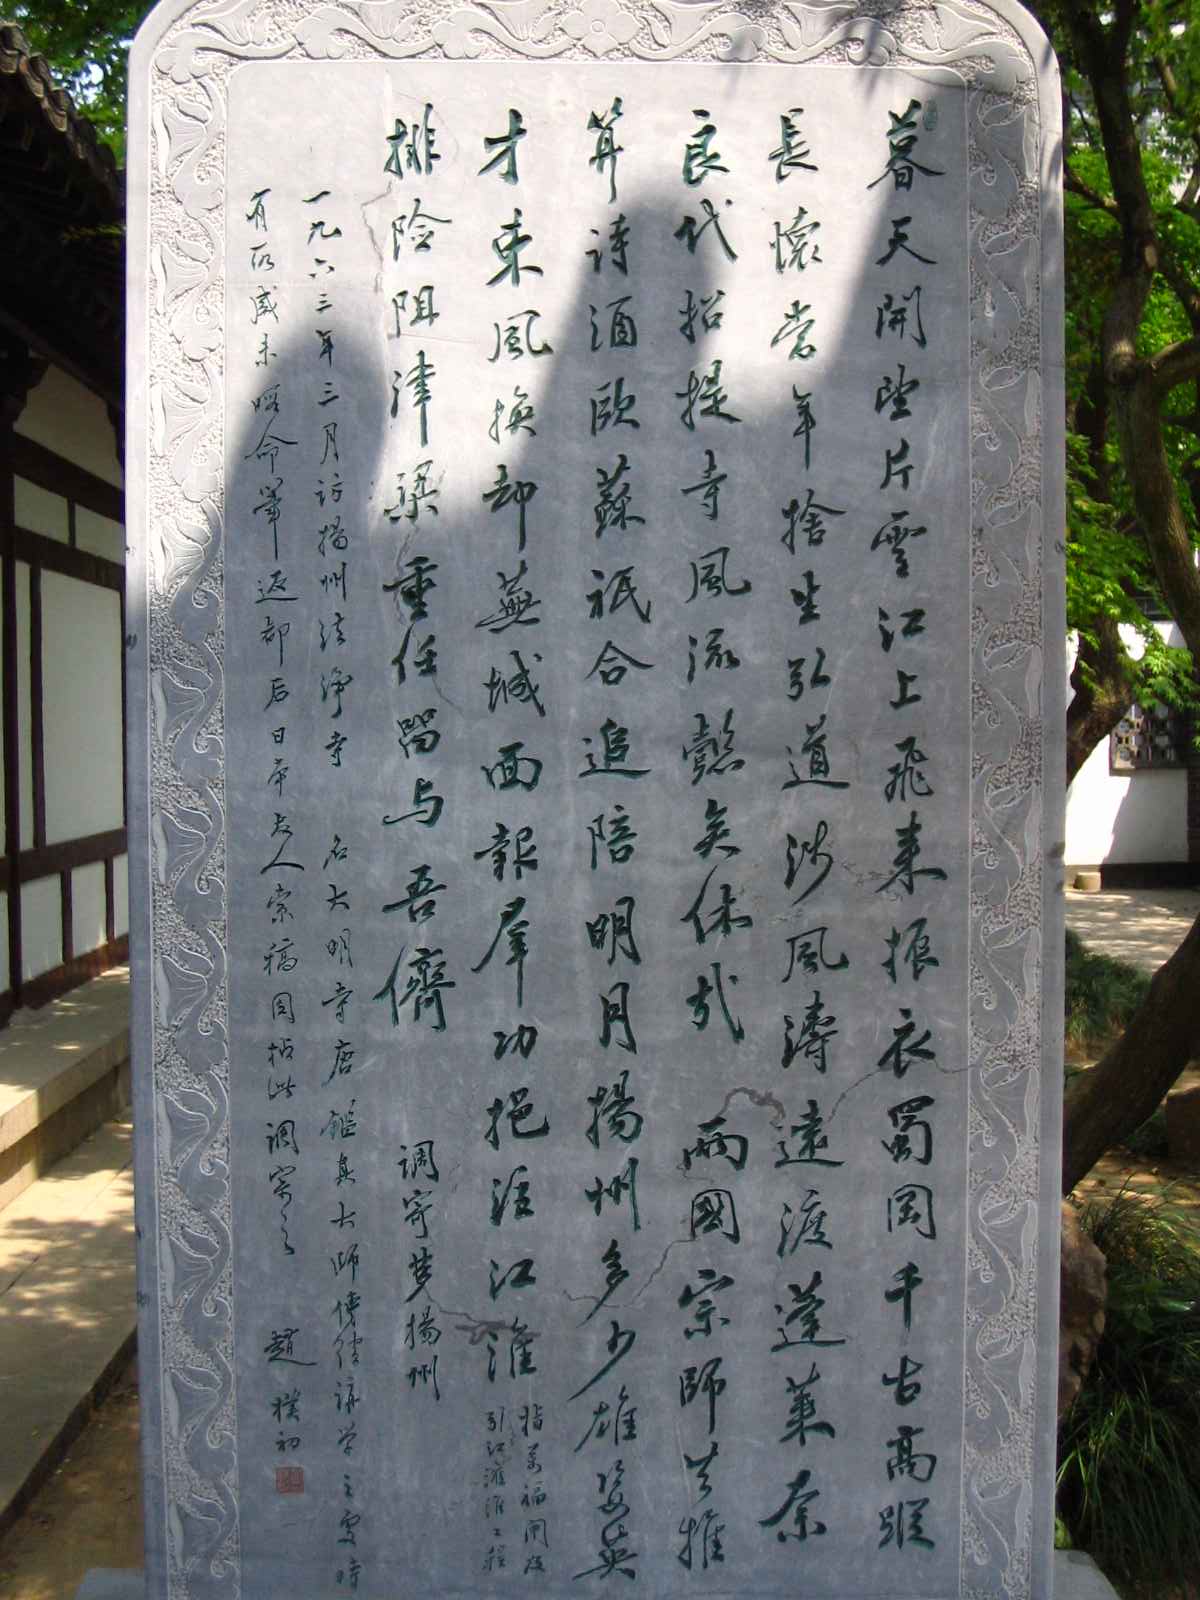 暮天開望片雲江上飛來振衣蜀岡千古高蹤
長懷當年捨生弘道涉風濤遠渡蓬萊奈
良代招提寺風流懿矣休哉 兩國宗師共推
算詩酒歐蘇祇合追陪明月揚州多少雄姿英
才東風換却蕪城面報群功挹注江淮
指萬福閘及
引江灌淮工程
排險阻津梁重任留与吾儕 調寄夢揚州
一九六三年三月访揚州法淨寺 名大明寺唐鑑真大师傳律講学之處時
有所感未暇命筆返都后日本友人索稿因拈此調寄之 趙樸初